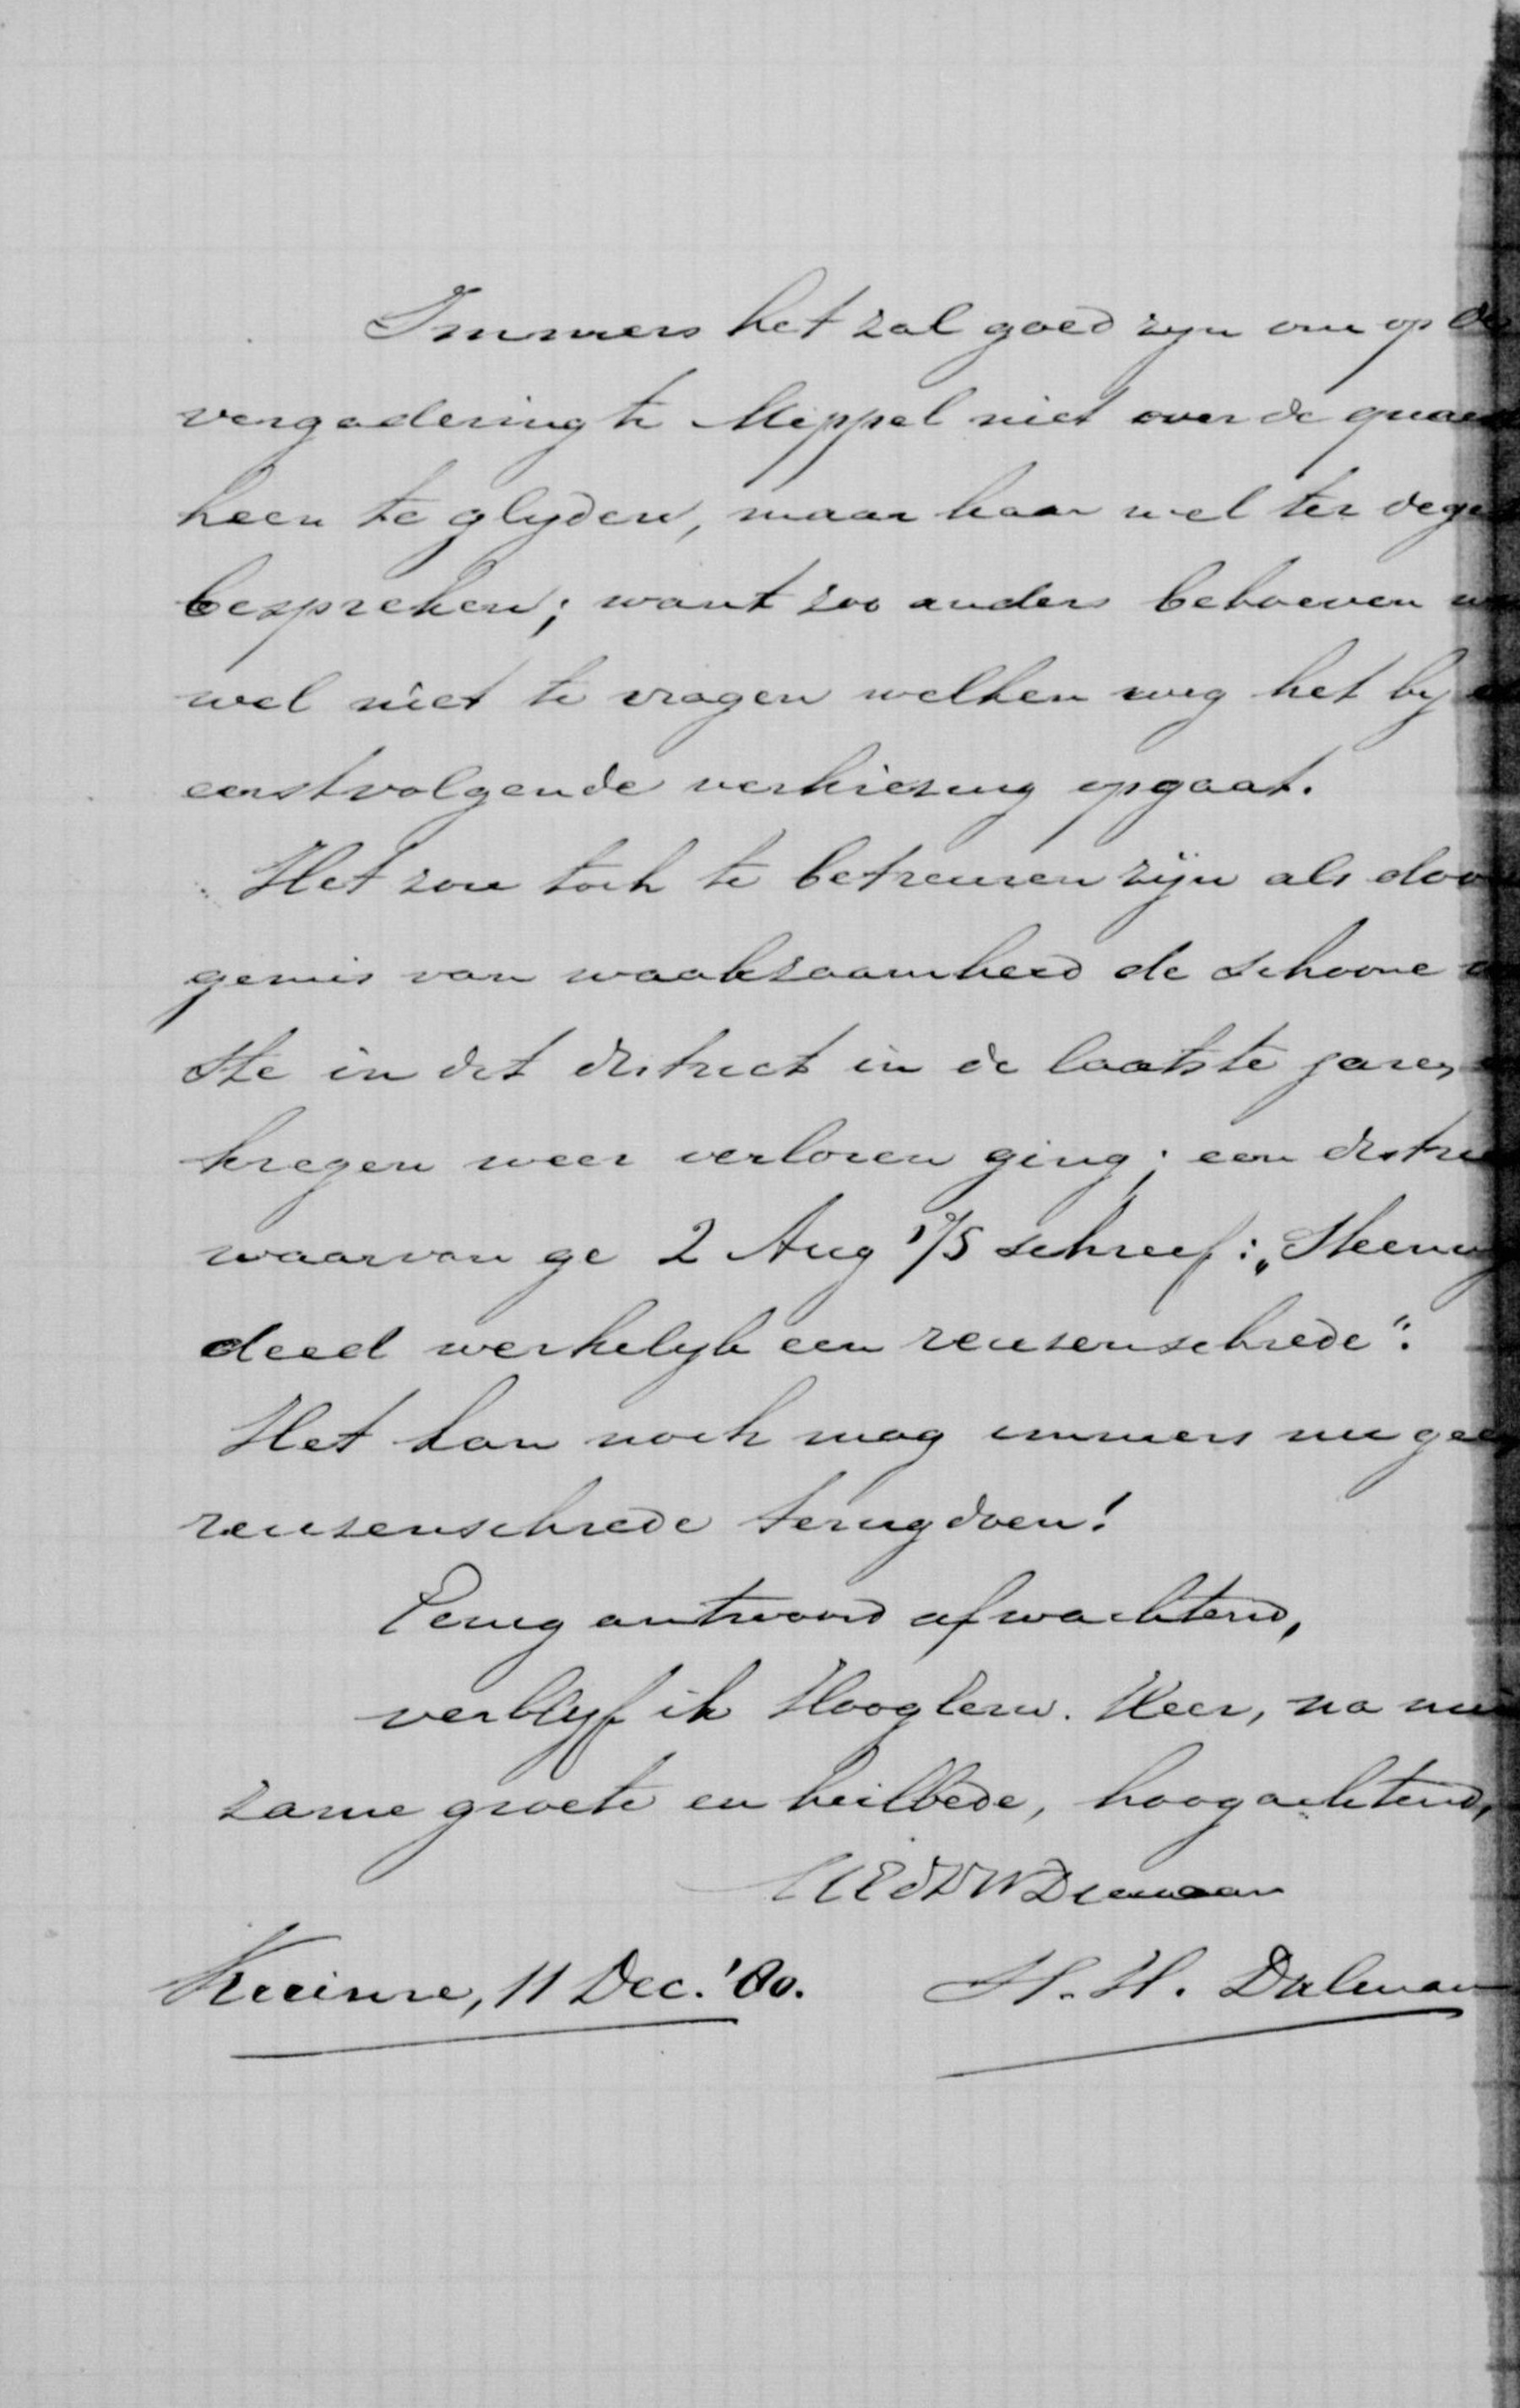 Immers het zal goed zyn om op de
vergadering te Meppel niet over de quaes
heen te glyden, maar haar wel ter dege
bespreken; want zoo anders behoeven we
wel niet te vragen welken weg het by
eerstvolgende verkiezing opgaat.
Het zou toch te betreuren zijn als door
gemis van waakzaamheid de schoone
ste in dit district in de laatste jaren
kregen weer verloren ging; een distri
waarvan ge 2 Aug '75 schreef: „Steenw
deed werkelyk een reuzenschrede".
Het kan noch mag immers nu geen
reuzenschrede terugdoen!
Eenig antwoord afwachtend,
verblyf ik Hooglerw. Heer, na min
zame groete en heilbede, hoogachtend,
UEdDWDienaar
Kuinre, 11 Dec. '80. H. H. Dalman